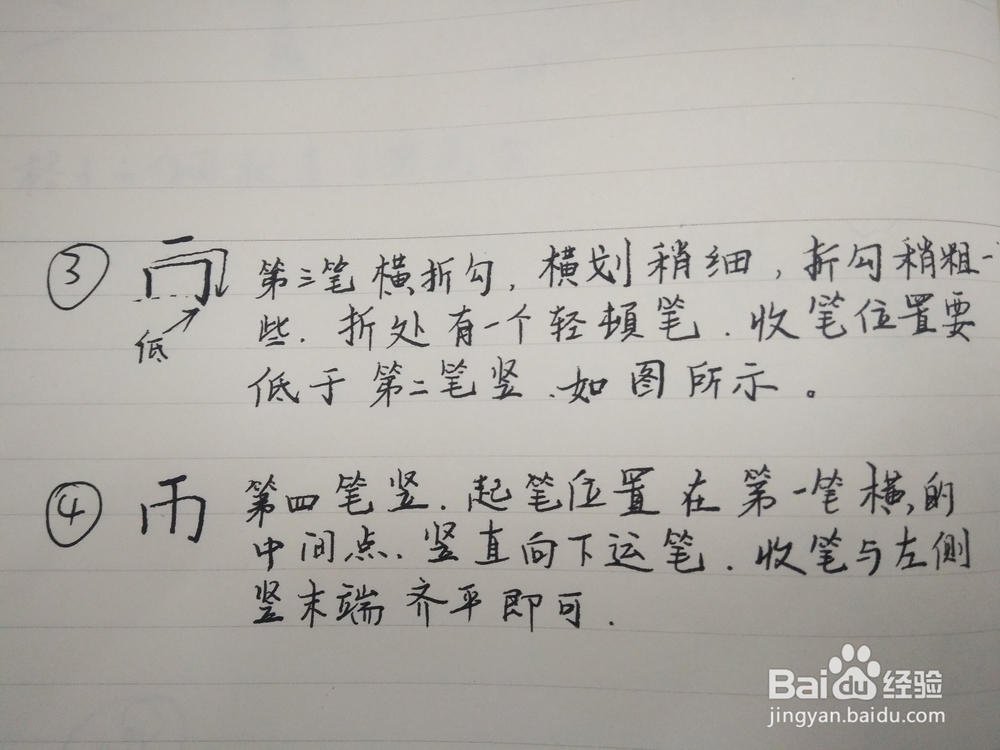 ③ 第三笔横折勾，横划稍细，折勾稍粗一
些．折处有一个轻顿笔．收笔位置要
低
低于第二笔竖．如图所示。
④ 第四笔竖．起笔位置在第一笔横的
中间点．竖直向下运笔．收笔与左侧
竖末端齐平即可．
Baidu经验
jingyan.baidu.com